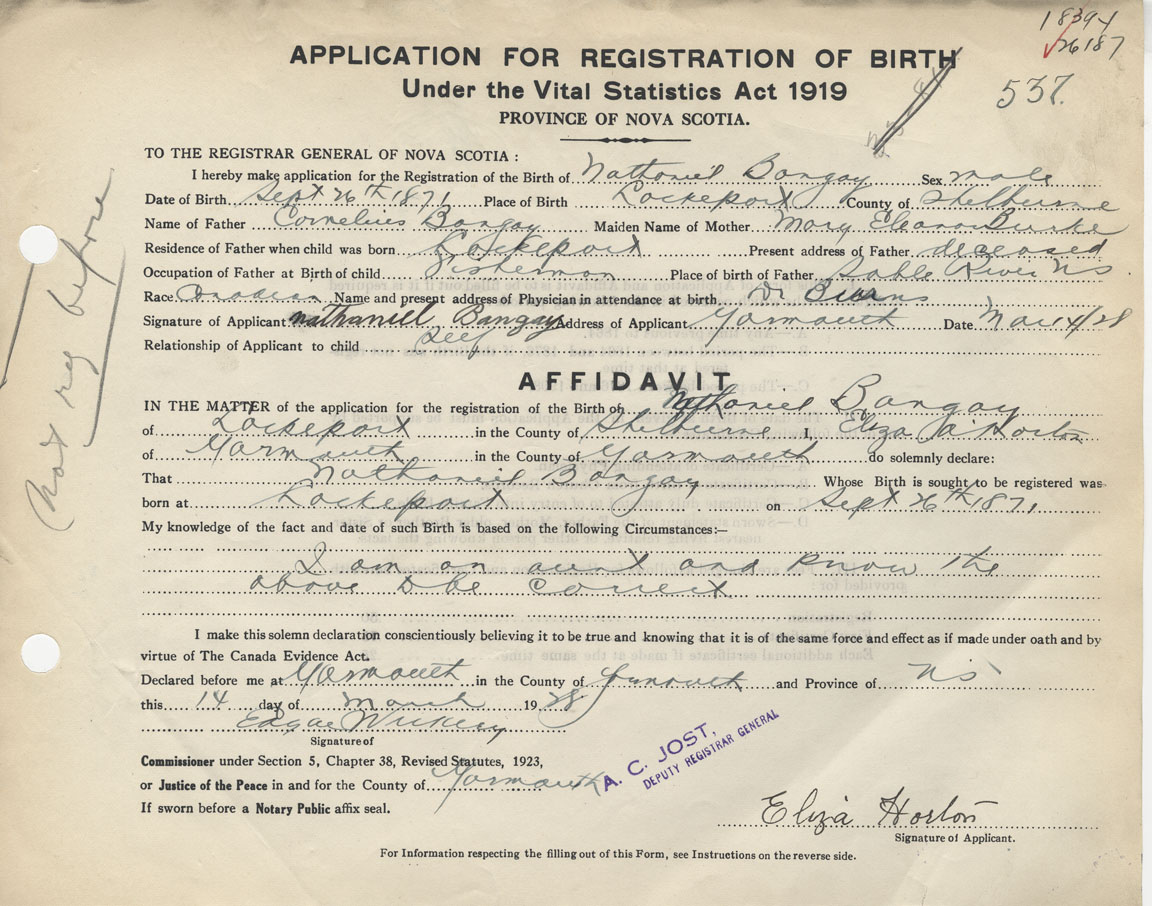 18394
26187
APPLICATION FOR REGISTRATION OF BIRTH
537.
Under the Vital Statistics Act 1919
PROVINCE OF NOVA SCOTIA.
TO THE REGISTRAR GENERAL OF NOVA SCOTIA :
I hereby make application for the Registration of the Birth of Nathaniel Bangay Sex male
Date of Birth Sept 26th 1871 Place of Birth Lockeport County of Shelburne
Name of Father Cornelius Bangay Maiden Name of Mother Mary Eleanor Burke
Residence of Father when child was born Lockeport Present address of Father deceased
Occupation of Father at Birth of child Fisherman Place of birth of Father Sable River NS
Race Canadian Name and present address of Physician in attendance at birth Dr Burns
Signature of Applicant Nathaniel Bangay Address of Applicant Yarmouth Date Mar 14/28
Relationship of Applicant to child Self
Not reg before
AFFIDAVIT
IN THE MATTER of the application for the registration of the Birth of Nathaniel Bangay
of Lockeport in the County of Shelburne I, Eliza A Horton
of Yarmouth in the County of Yarmouth do solemnly declare:
That Nathaniel Bangay Whose Birth is sought to be registered was
born at Lockeport on Sept 26th 1871
My knowledge of the fact and date of such Birth is based on the following Circumstances:—
I am an aunt and know the
above to be correct
I make this solemn declaration conscientiously believing it to be true and knowing that it is of the same force and effect as if made under oath and by
virtue of The Canada Evidence Act.
Declared before me at Yarmouth in the County of Yarmouth and Province of NS
this 14 day of March 1928
Edgar
Signature of
Commissioner under Section 5, Chapter 38, Revised Statutes, 1923,
or Justice of the Peace in and for the County of Yarmouth
If sworn before a Notary Public affix seal.
A. C. JOST,
DEPUTY REGISTRAR GENERAL
Eliza Horton
Signature of Applicant.
For Information respecting the filling out of this Form, see Instructions on the reverse side.